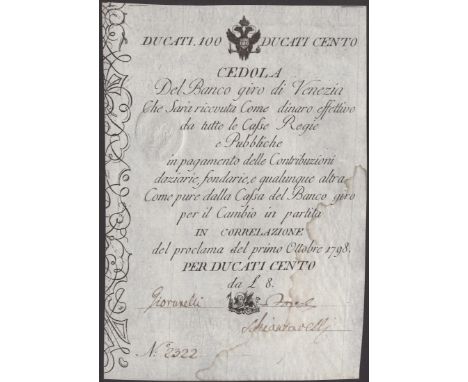 DUCATI.100 DUCATI CENTO
CEDOLA
Del Banco giro di Venezia
Che Sarà ricevuta Come dinaro effettivo
da tutte le Casse Regie
e Pubbliche
in pagamento delle Contribuzioni
daziarie, fondarie, e qualunque altra
Come pure dalla Cassa del Banco giro
per il Cambio in partita
IN CORRELAZIONE
del proclama del primo Ottobre 1798.
PER DUCATI CENTO
da L 8.
Giovanelli
N.º 2322